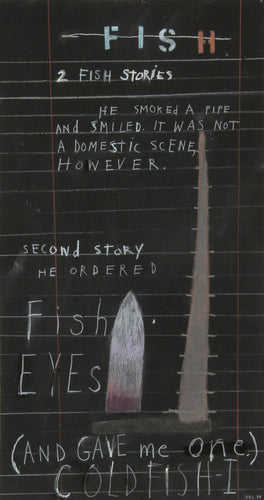 FISH
2 FISH STORIES
HE SMOKED A PIPE
AND SMILED. IT WAS NOT
A DOMESTIC SCENE,
HOWEVER.
SECOND STORY
HE ORDERED
Fish
EYEs
(AND GAVE me one)
COLDFISH-I